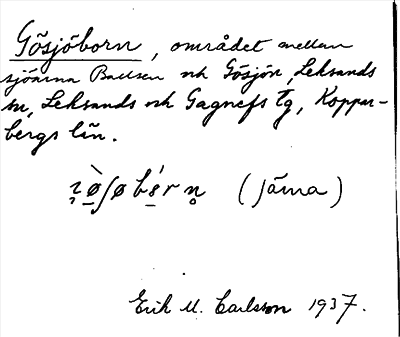 Gösjöborn, området mellan
sjöarna Balsen och Gösjön, Leksands
sn, Leksands och Gagnefs tg, Koppar-
bergs län.
(Järna)
Erik M. Carlsson 1937.